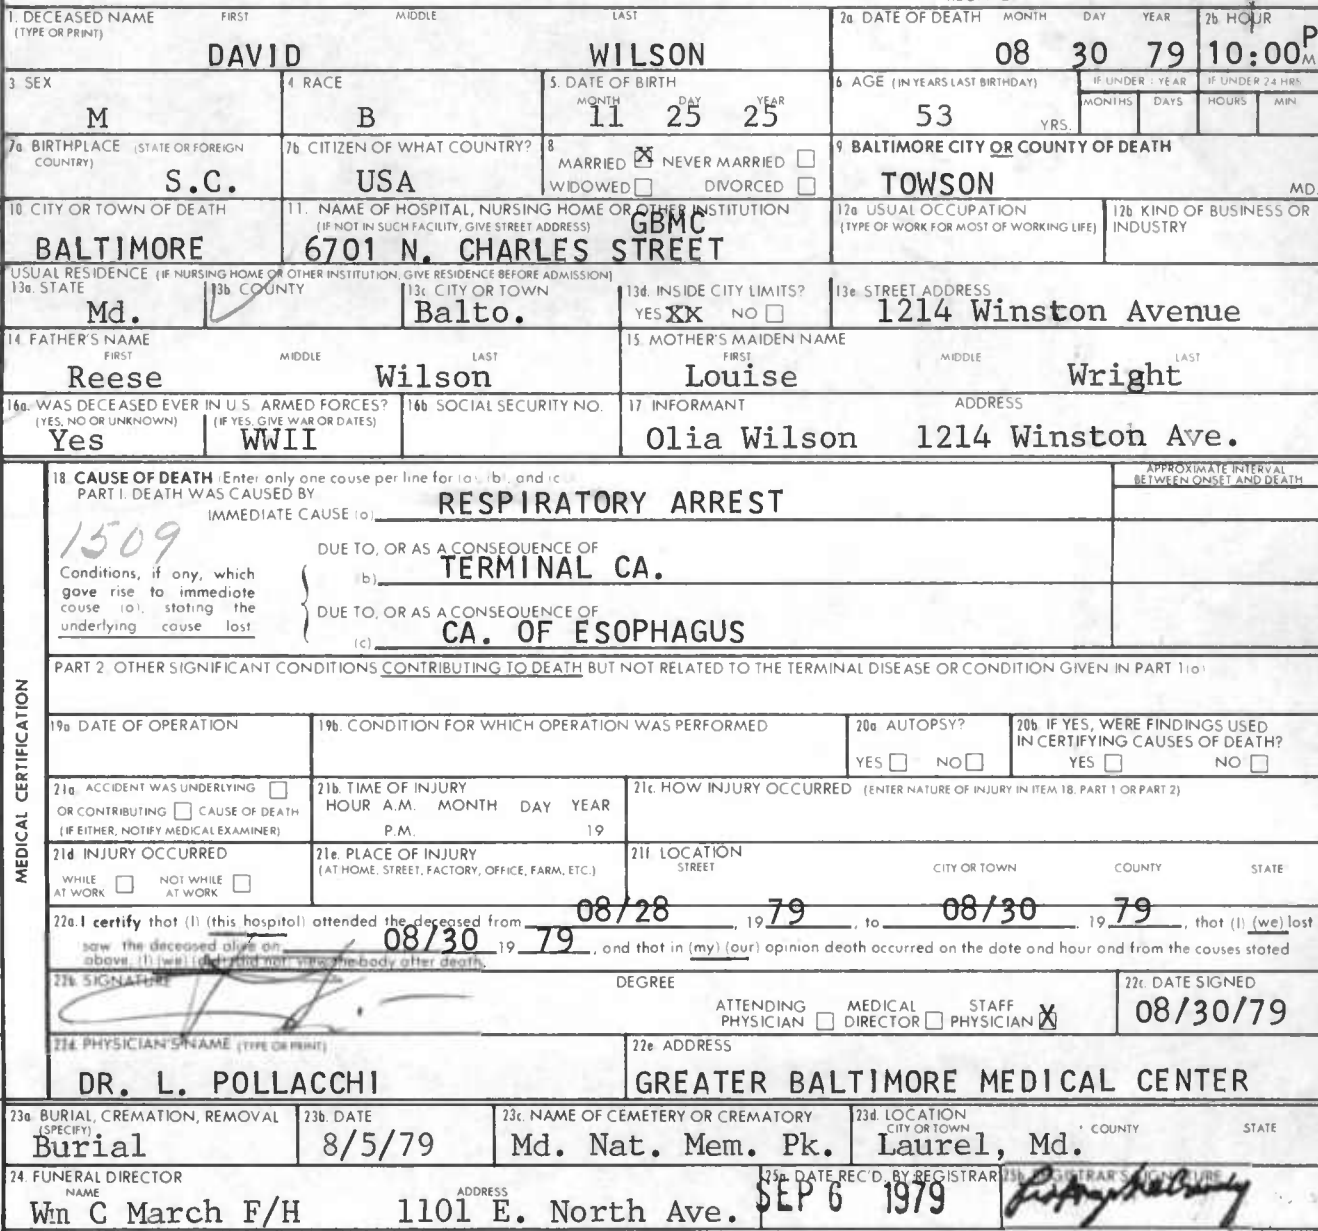 1. DECEASED NAME FIRST MIDDLE LAST
(TYPE OR PRINT)
DAVID WILSON
2a DATE OF DEATH MONTH DAY YEAR
08 30 79
2b HOUR
10:00 P M
3 SEX
M
4 RACE
B
5. DATE OF BIRTH
MONTH DAY YEAR
11 25 25
6 AGE (IN YEARS LAST BIRTHDAY)
53 YRS.
IF UNDER 1 YEAR
MONTHS DAYS
IF UNDER 24 HRS
HOURS MIN
7a BIRTHPLACE (STATE OR FOREIGN
COUNTRY)
S.C.
7b CITIZEN OF WHAT COUNTRY?
USA
8
MARRIED X NEVER MARRIED
WIDOWED DIVORCED
9 BALTIMORE CITY OR COUNTY OF DEATH
TOWSON MD.
10 CITY OR TOWN OF DEATH
BALTIMORE
11. NAME OF HOSPITAL, NURSING HOME OR OTHER INSTITUTION
(IF NOT IN SUCH FACILITY, GIVE STREET ADDRESS) GBMC
6701 N. CHARLES STREET
12a USUAL OCCUPATION
(TYPE OF WORK FOR MOST OF WORKING LIFE)
12b KIND OF BUSINESS OR
INDUSTRY
USUAL RESIDENCE (IF NURSING HOME OR OTHER INSTITUTION, GIVE RESIDENCE BEFORE ADMISSION)
13a. STATE
Md.
13b COUNTY
13c CITY OR TOWN
Balto.
13d. INSIDE CITY LIMITS?
YES XX NO
13e STREET ADDRESS
1214 Winston Avenue
14 FATHER'S NAME
FIRST MIDDLE LAST
Reese Wilson
15 MOTHER'S MAIDEN NAME
FIRST MIDDLE LAST
Louise Wright
16a. WAS DECEASED EVER IN U.S. ARMED FORCES?
(YES, NO OR UNKNOWN) (IF YES, GIVE WAR OR DATES)
Yes WWII
16b SOCIAL SECURITY NO.
17 INFORMANT ADDRESS
Olia Wilson 1214 Winston Ave.
MEDICAL CERTIFICATION
18 CAUSE OF DEATH (Enter only one cause per line for (a), (b), and (c)
APPROXIMATE INTERVAL
BETWEEN ONSET AND DEATH
PART I. DEATH WAS CAUSED BY
IMMEDIATE CAUSE (a) RESPIRATORY ARREST
1509
DUE TO, OR AS A CONSEQUENCE OF
(b) TERMINAL CA.
Conditions, if any, which
gave rise to immediate
cause (a), stating the
underlying cause last
DUE TO, OR AS A CONSEQUENCE OF
(c) CA. OF ESOPHAGUS
PART 2. OTHER SIGNIFICANT CONDITIONS CONTRIBUTING TO DEATH BUT NOT RELATED TO THE TERMINAL DISEASE OR CONDITION GIVEN IN PART 1(a)
19a DATE OF OPERATION
19b. CONDITION FOR WHICH OPERATION WAS PERFORMED
20a AUTOPSY?
YES NO
20b. IF YES, WERE FINDINGS USED
IN CERTIFYING CAUSES OF DEATH?
YES NO
21a. ACCIDENT WAS UNDERLYING
OR CONTRIBUTING CAUSE OF DEATH
(IF EITHER, NOTIFY MEDICAL EXAMINER)
21b. TIME OF INJURY
HOUR A.M. MONTH DAY YEAR
P.M. 19
21c. HOW INJURY OCCURRED (ENTER NATURE OF INJURY IN ITEM 18. PART 1 OR PART 2)
21d INJURY OCCURRED
WHILE AT WORK NOT WHILE AT WORK
21e. PLACE OF INJURY
(AT HOME, STREET, FACTORY, OFFICE, FARM, ETC.)
21f. LOCATION
STREET CITY OR TOWN COUNTY STATE
22a. I certify that (I) (this hospital) attended the deceased from 08/28, 19 79, to 08/30, 19 79, that (I) (we) last
saw the deceased alive on 08/30 19 79, and that in (my) (our) opinion death occurred on the date and hour and from the causes stated
above, (I) (we) (did) (did not) view the body after death.
22b SIGNATURE DEGREE
ATTENDING PHYSICIAN MEDICAL DIRECTOR STAFF PHYSICIAN X
22c. DATE SIGNED
08/30/79
22d. PHYSICIAN'S NAME (TYPE OR PRINT)
DR. L. POLLACCHI
22e ADDRESS
GREATER BALTIMORE MEDICAL CENTER
23a BURIAL, CREMATION, REMOVAL
(SPECIFY)
Burial
23b. DATE
8/5/79
23c. NAME OF CEMETERY OR CREMATORY
Md. Nat. Mem. Pk.
23d. LOCATION
CITY OR TOWN COUNTY STATE
Laurel, Md.
24. FUNERAL DIRECTOR
NAME ADDRESS
Wm C March F/H 1101 E. North Ave.
25a. DATE REC'D. BY REGISTRAR
SEP 6 1979
25b. REGISTRAR'S SIGNATURE